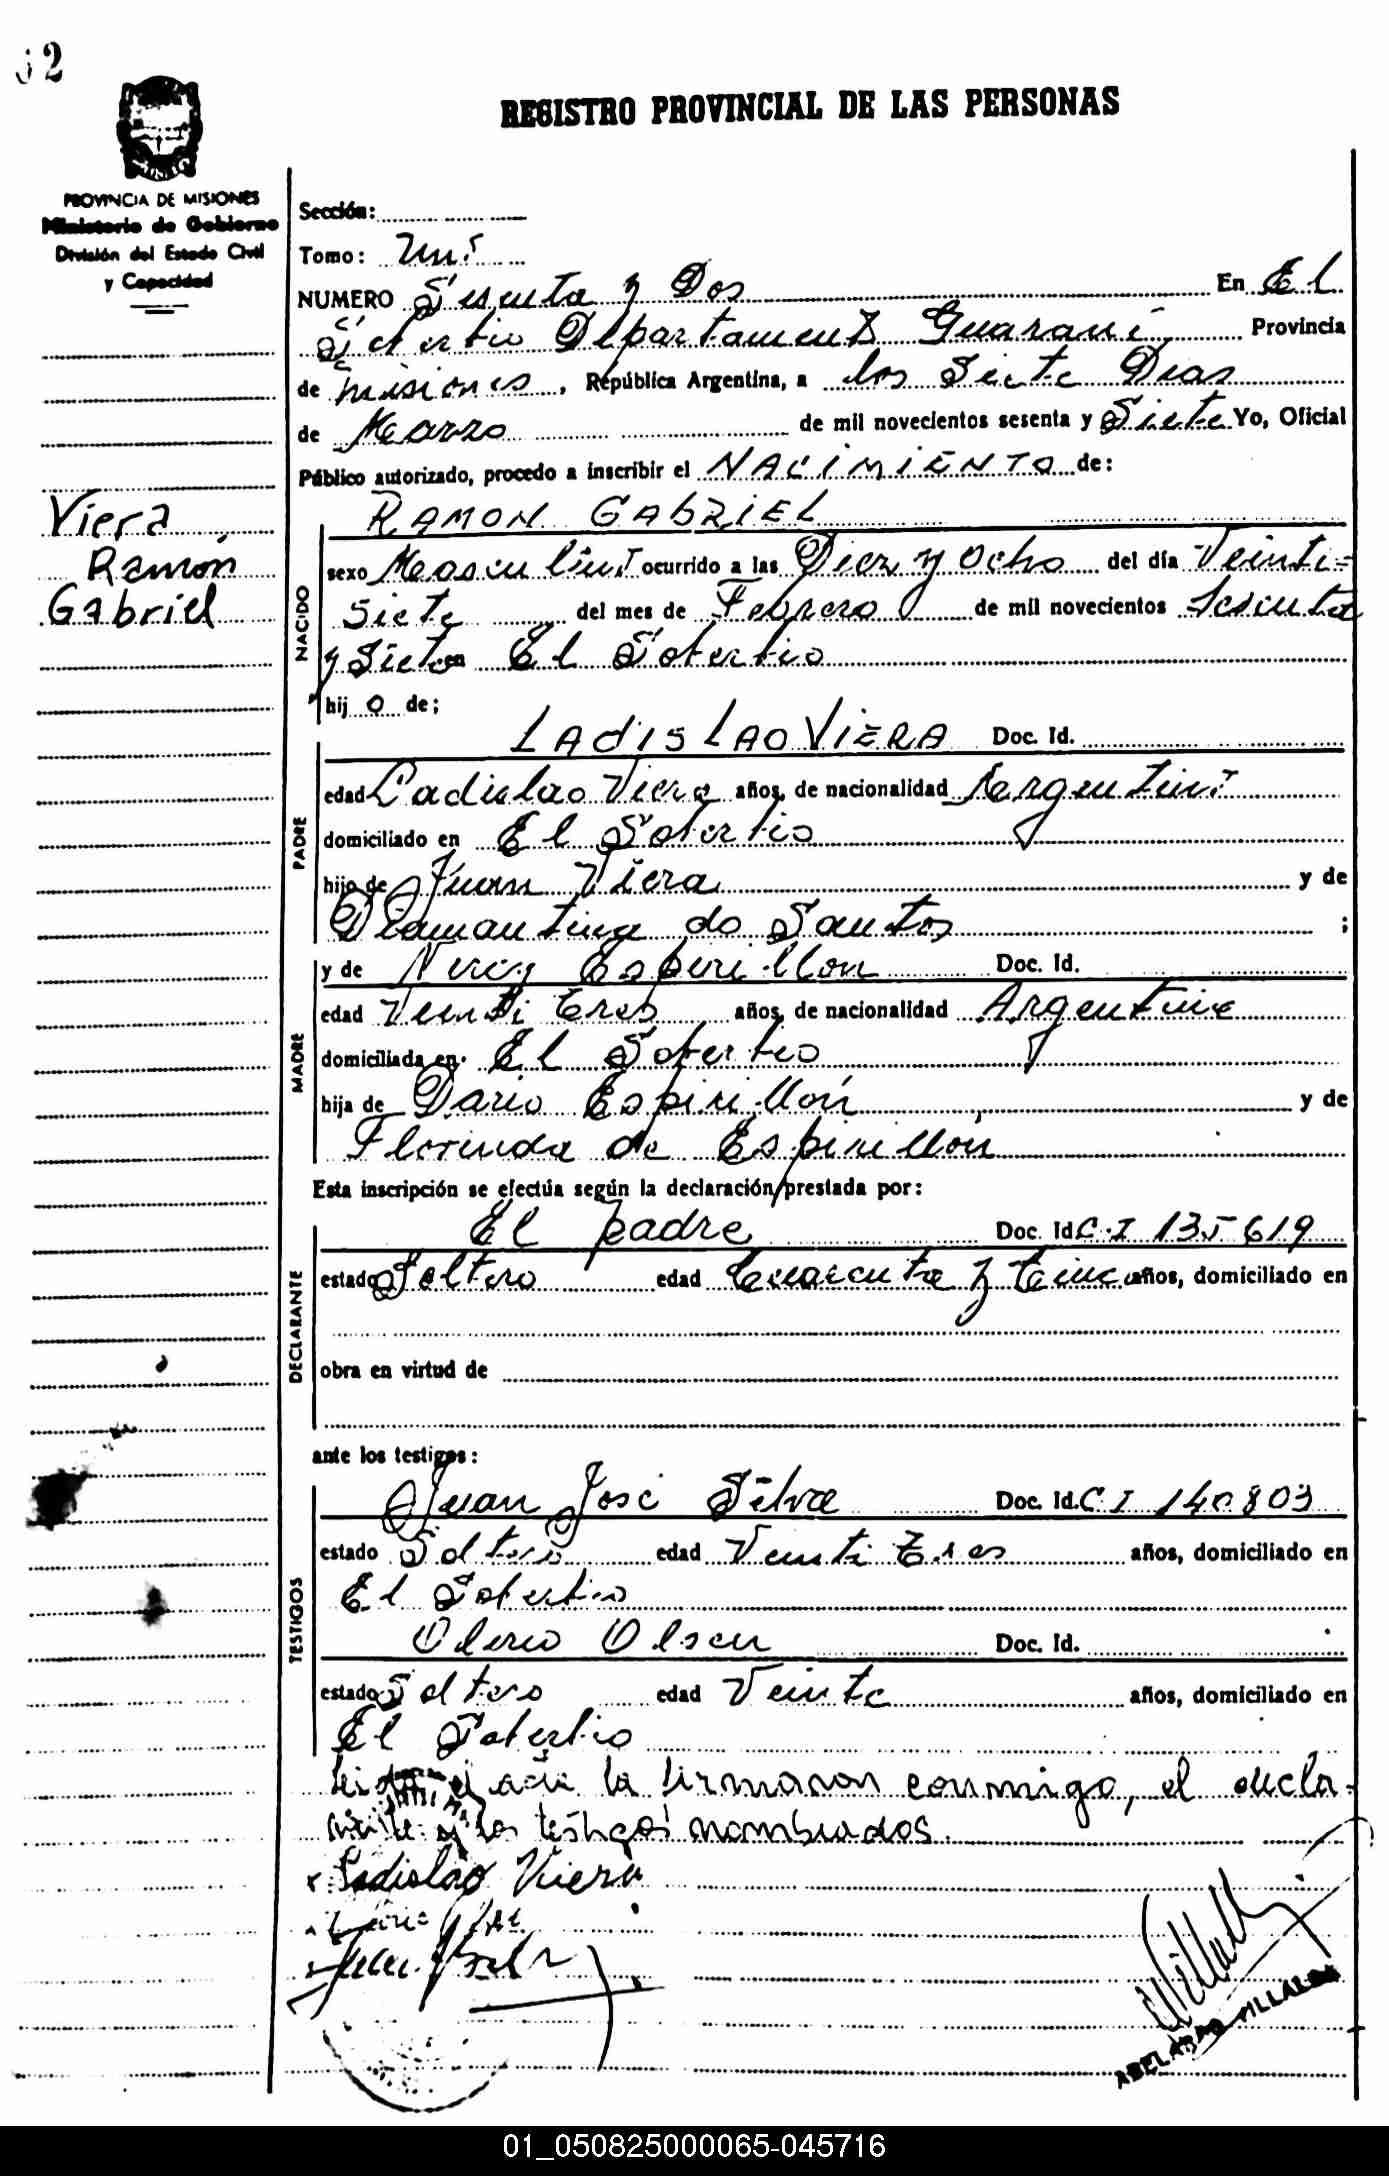 62
REGISTRO PROVINCIAL DE LAS PERSONAS
PROVINCIA DE MISIONES
Ministerio de Gobierno
División del Estado Civil
y Capacidad
Sección:
Tomo: Uno
NUMERO Sesenta y Dos En El
Soberbio Departamento Guarani Provincia
de misiones, República Argentina, a los Siete Dias
de Marzo de mil novecientos sesenta y Siete Yo, Oficial
Público autorizado, procedo a inscribir el NACIMIENTO de:
Viera
Ramón
Gabriel
RAMON GABRIEL
NACIDO
sexo Masculino ocurrido a las Diez y Ocho del día Veinti=
Siete del mes de Febrero de mil novecientos Sesenta
y Siete en El Soberbio
hijo de:
LADISLAO VIERA Doc. Id.
PADRE
edad Ladislao Viera años, de nacionalidad Argentino
domiciliado en El Soberbio
hijo de Juan Viera y de
Diamantina do Santos ;
y de Nercy Espinillon Doc. Id.
MADRE
edad Veinti tres años, de nacionalidad Argentina
domiciliada en El Soberbio
hija de Dario Espinillón y de
Florinda de Espinillón
Esta inscripción se efectúa según la declaración prestada por:
El padre Doc. Id C.I 135619
DECLARANTE
estado Soltero edad Cuarenta y Cinco años, domiciliado en
obra en virtud de
ante los testigos:
Juan José Silva Doc. Id. C I 140803
TESTIGOS
estado Soltero edad Veinti tres años, domiciliado en
El Soberbio
Olsen Doc. Id.
estado Soltero edad Veinte años, domiciliado en
El Soberbio
Leida el acta la firmaron conmigo, el decla-
rante y los testigos nombrados.
Ladislao Viera
ABELARDO VILLALBA
01_050825000065-045716